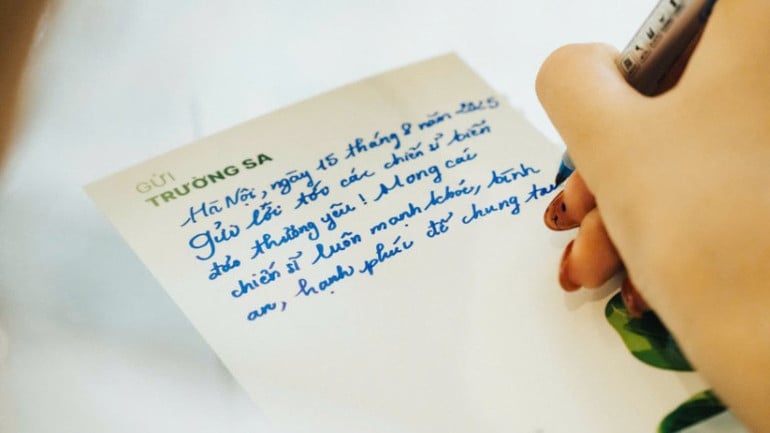 GỬI
TRƯỜNG SA
Hà Nội, ngày 15 tháng 8 năm 2025
gửi tới các chiến sĩ biển
đảo thương yêu! Mong các
chiến sĩ luôn mạnh khỏe, bình
an, hạnh phúc để chung tay